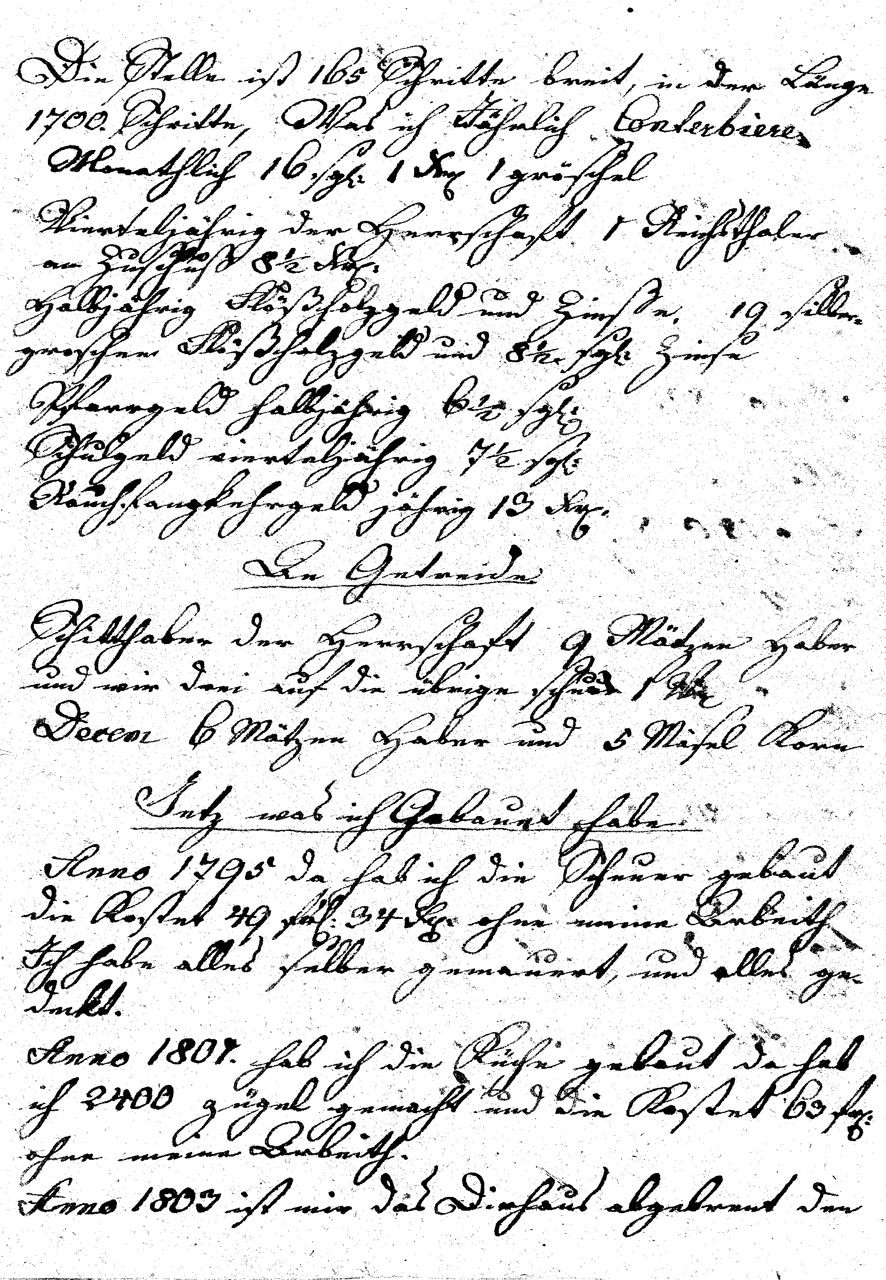 Die Stelle ist 165 Schritte breit, in der Länge
1700. Schritte, Was ich Jährlich Conterbiere
Monathlich 16 sgl: 1 Kr 1 gröschel
Vierteljährig der Herrschaft 1 Reichsthaler
an Zuschuß 8½ Kr:
Halbjährig Flößholzgeld und Zinße, 19 silber-
groschen Flößholzgeld und 8½ sgl: Zinse
Pfarrgeld halbjährig 6½ sgl:
Schulgeld vierteljährig 7½ sgl:
Rauchfangkehrgeld jährig 13 Kr.
An Getreide
Schitthaber der Herrschaft 9 Mätzen Haber
und wir drei auf die übrige 1
Decem 6 Mätzen Haber und 5 Mäsel Korn
Jetz was ich Gebauet habe
Anno 1795 da hab ich die Scheuer gebaut
die Kostet 49 fl: 34 Kr. ohne meine Arbeith
Ich habe alles selber gemauert, und alles ge-
dekt.
Anno 1801. hab ich die Küche gebaut da hab
ich 2400 zügel gemacht und die Kostet 63 fl:
ohne meine Arbeith.
Anno 1803 ist mir das Dirhaus abgebrent den